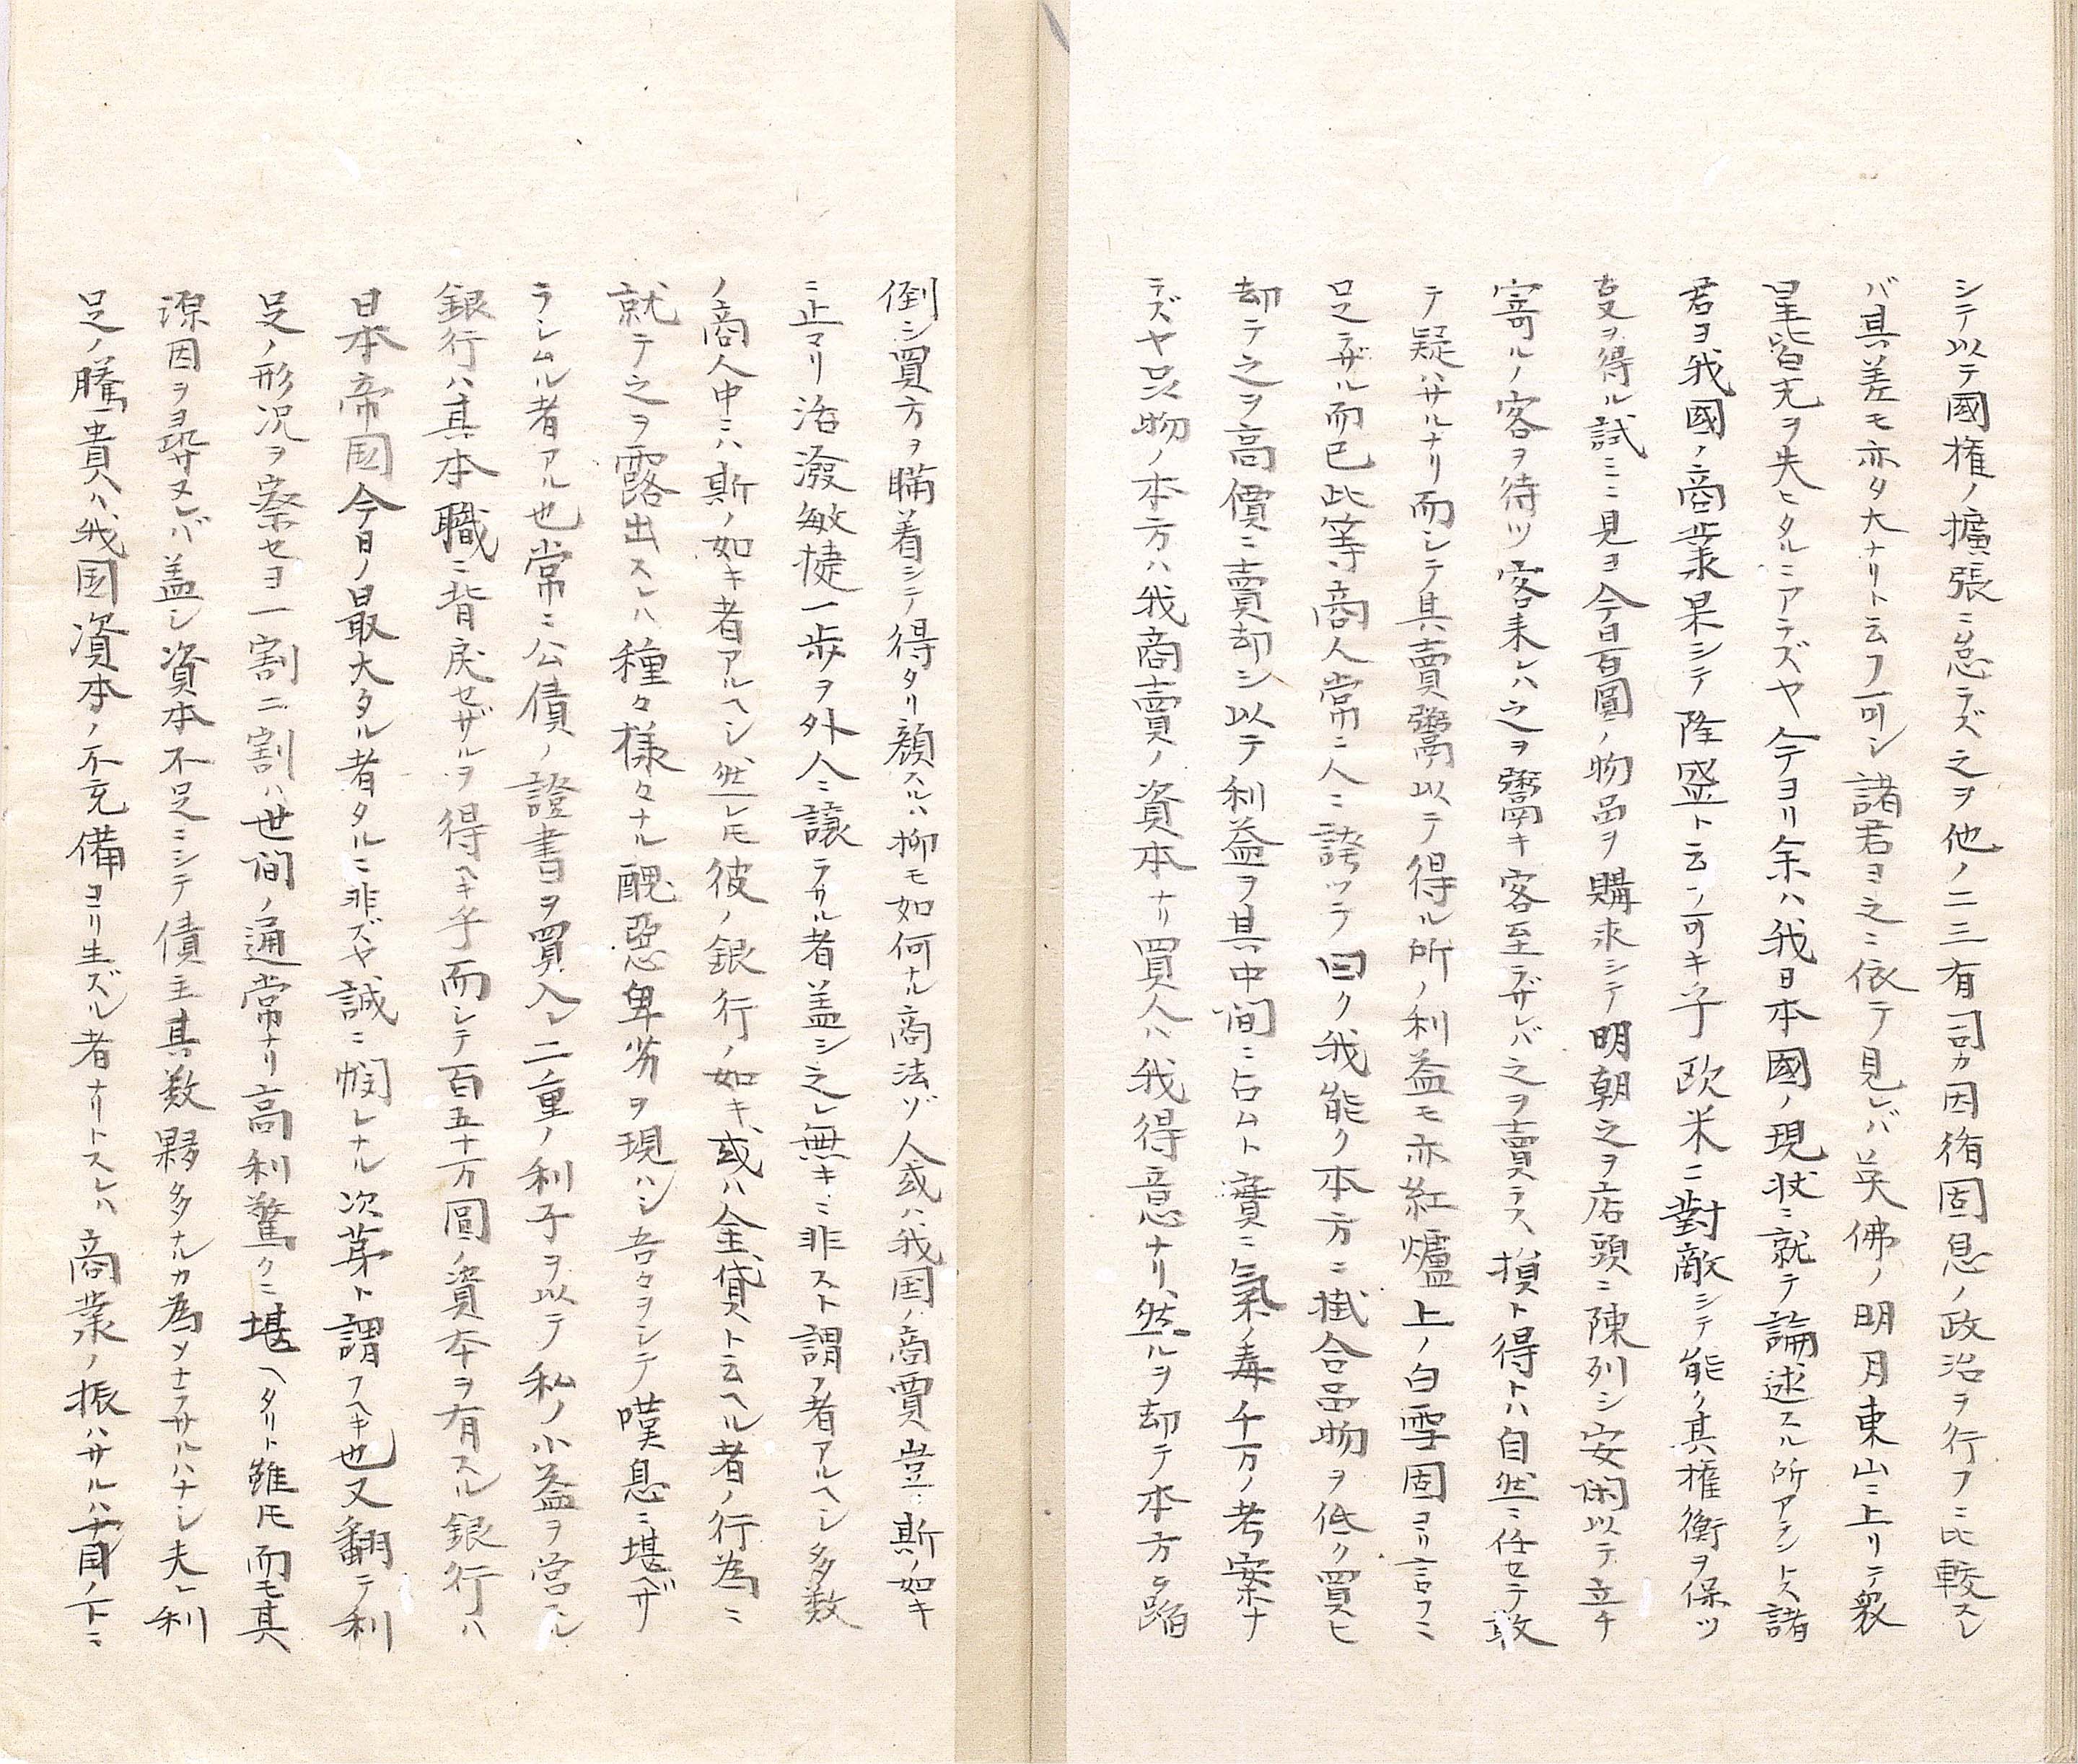 シテ以テ國権ノ擴張ニ怠ラズ之ヲ他ノ二三有司カ因循固息ノ政治ヲ行フニ比較スレ
バ其差モ亦タ大ナリト云フ可シ諸君ヨ之ニ依テ見レバ英佛ノ明月東山ニ上リテ衆
星皆光ヲ失ヒタルニアラズヤ今ヨリ余ハ我日本國ノ現状ニ就テ論述スル所アラントス諸
君ヨ我國ノ商業果シテ隆盛ト云フ可キ乎欧米ニ對敵シテ能ク其権衡ヲ保ツ
ヲ得ル試ミニ見ヨ今日百圓ノ物品ヲ購求シテ明朝之ヲ店頭ニ陳列シ安閑以テ立チ
寄ルノ客ヲ待ツ客来レハ之ヲ鬻キ客至ラザレバ之ヲ賣ラス損ト得トハ自然ニ任セテ敢
テ疑ハサルナリ而シテ其賣鬻以テ得ル所ノ利益モ亦紅爐上ノ白雪固ヨリ言フニ
足ラザル而已此等商人常ニ人ニ誇ツラ曰ク我能ク本方ニ掛合品物ヲ低ク買ヒ
却テ之ヲ高價ニ賣却シ以テ利益ヲ其中間ニ占ムト實ニ氣ノ毒千万ノ考案ナ
ラズヤ品物ノ本方ハ我商賣ノ資本ナリ買人ハ我得意ナリ、然ルヲ却テ本方を陥
倒シ買方ヲ瞞着シテ得タリ顔スルハ抑モ如何ナル商法ゾ人或ハ我国ノ商賈豈ニ斯ノ如キ
ニ止マリ活潑敏捷一歩ヲ外人ニ譲ラサル者盖シ之レ無キニ非スト謂フ者アルヘシ多数
ノ商人中ニハ斯ノ如キ者アルヘシ、然レ𪜈彼ノ銀行ノ如キ、或ハ金貸ト云ヘル者ノ行為ニ
就テ之ヲ露出スレハ種々様々ナル醜惡卑劣ヲ現ハシ吾々ヲシテ嘆息ニ堪ヘザ
ラシムル者アル也常ニ公債ノ證書ヲ買入レ二重ノ利子ヲ以テ私ノ小益ヲ営ムレ
銀行ハ其本職ニ背戻セザルヲ得ヘキ乎而シテ百五十万圓ノ資本ヲ有スル銀行ハ
日本帝国今日ノ最大タル者タルニ非ズヤ誠ニ憫レナル次第ト謂フヘキ也又翻テ利
足ノ形况ヲ察セヨ一割二割ハ世間ノ通常ナリ高利驚クニ堪ヘタリト雖𪜈而モ其
源因ヲヨ尋サヌレバ盖シ資本不足ニシテ債主其数夥多ナルカ為ソナラサルハナシ夫レ利
足ノ騰貴ハ、我国資本ノ不充備ヨリ生ズル者ナリトスレハ商業ノ振ハサルハ目ノ下ニ